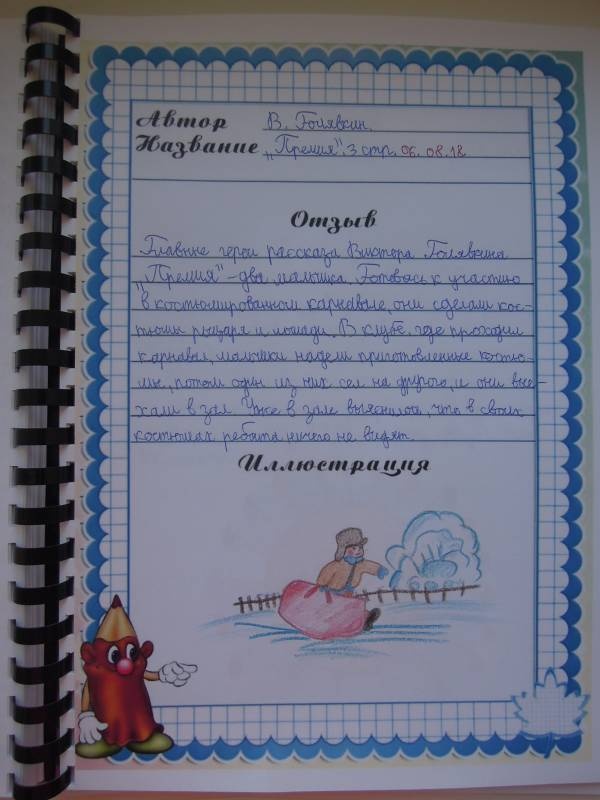 Автор В. Голявкин.
Название „Премия". 3 стр. 06.08.18
Отзыв
Главные герои рассказа Виктора Голявкина
„Премия" – два мальчика. Готовясь к участию
в костюмированном карнавале, они сделали кос-
тюмы рыцаря и лошади. В клубе, где проходил
карнавал, мальчики надели приготовленные костю-
мы, потом один из них сел на другого, и они вые-
хали в зал. Уже в зале выяснилось, что в своих
костюмах ребята ничего не видят.
Иллюстрация